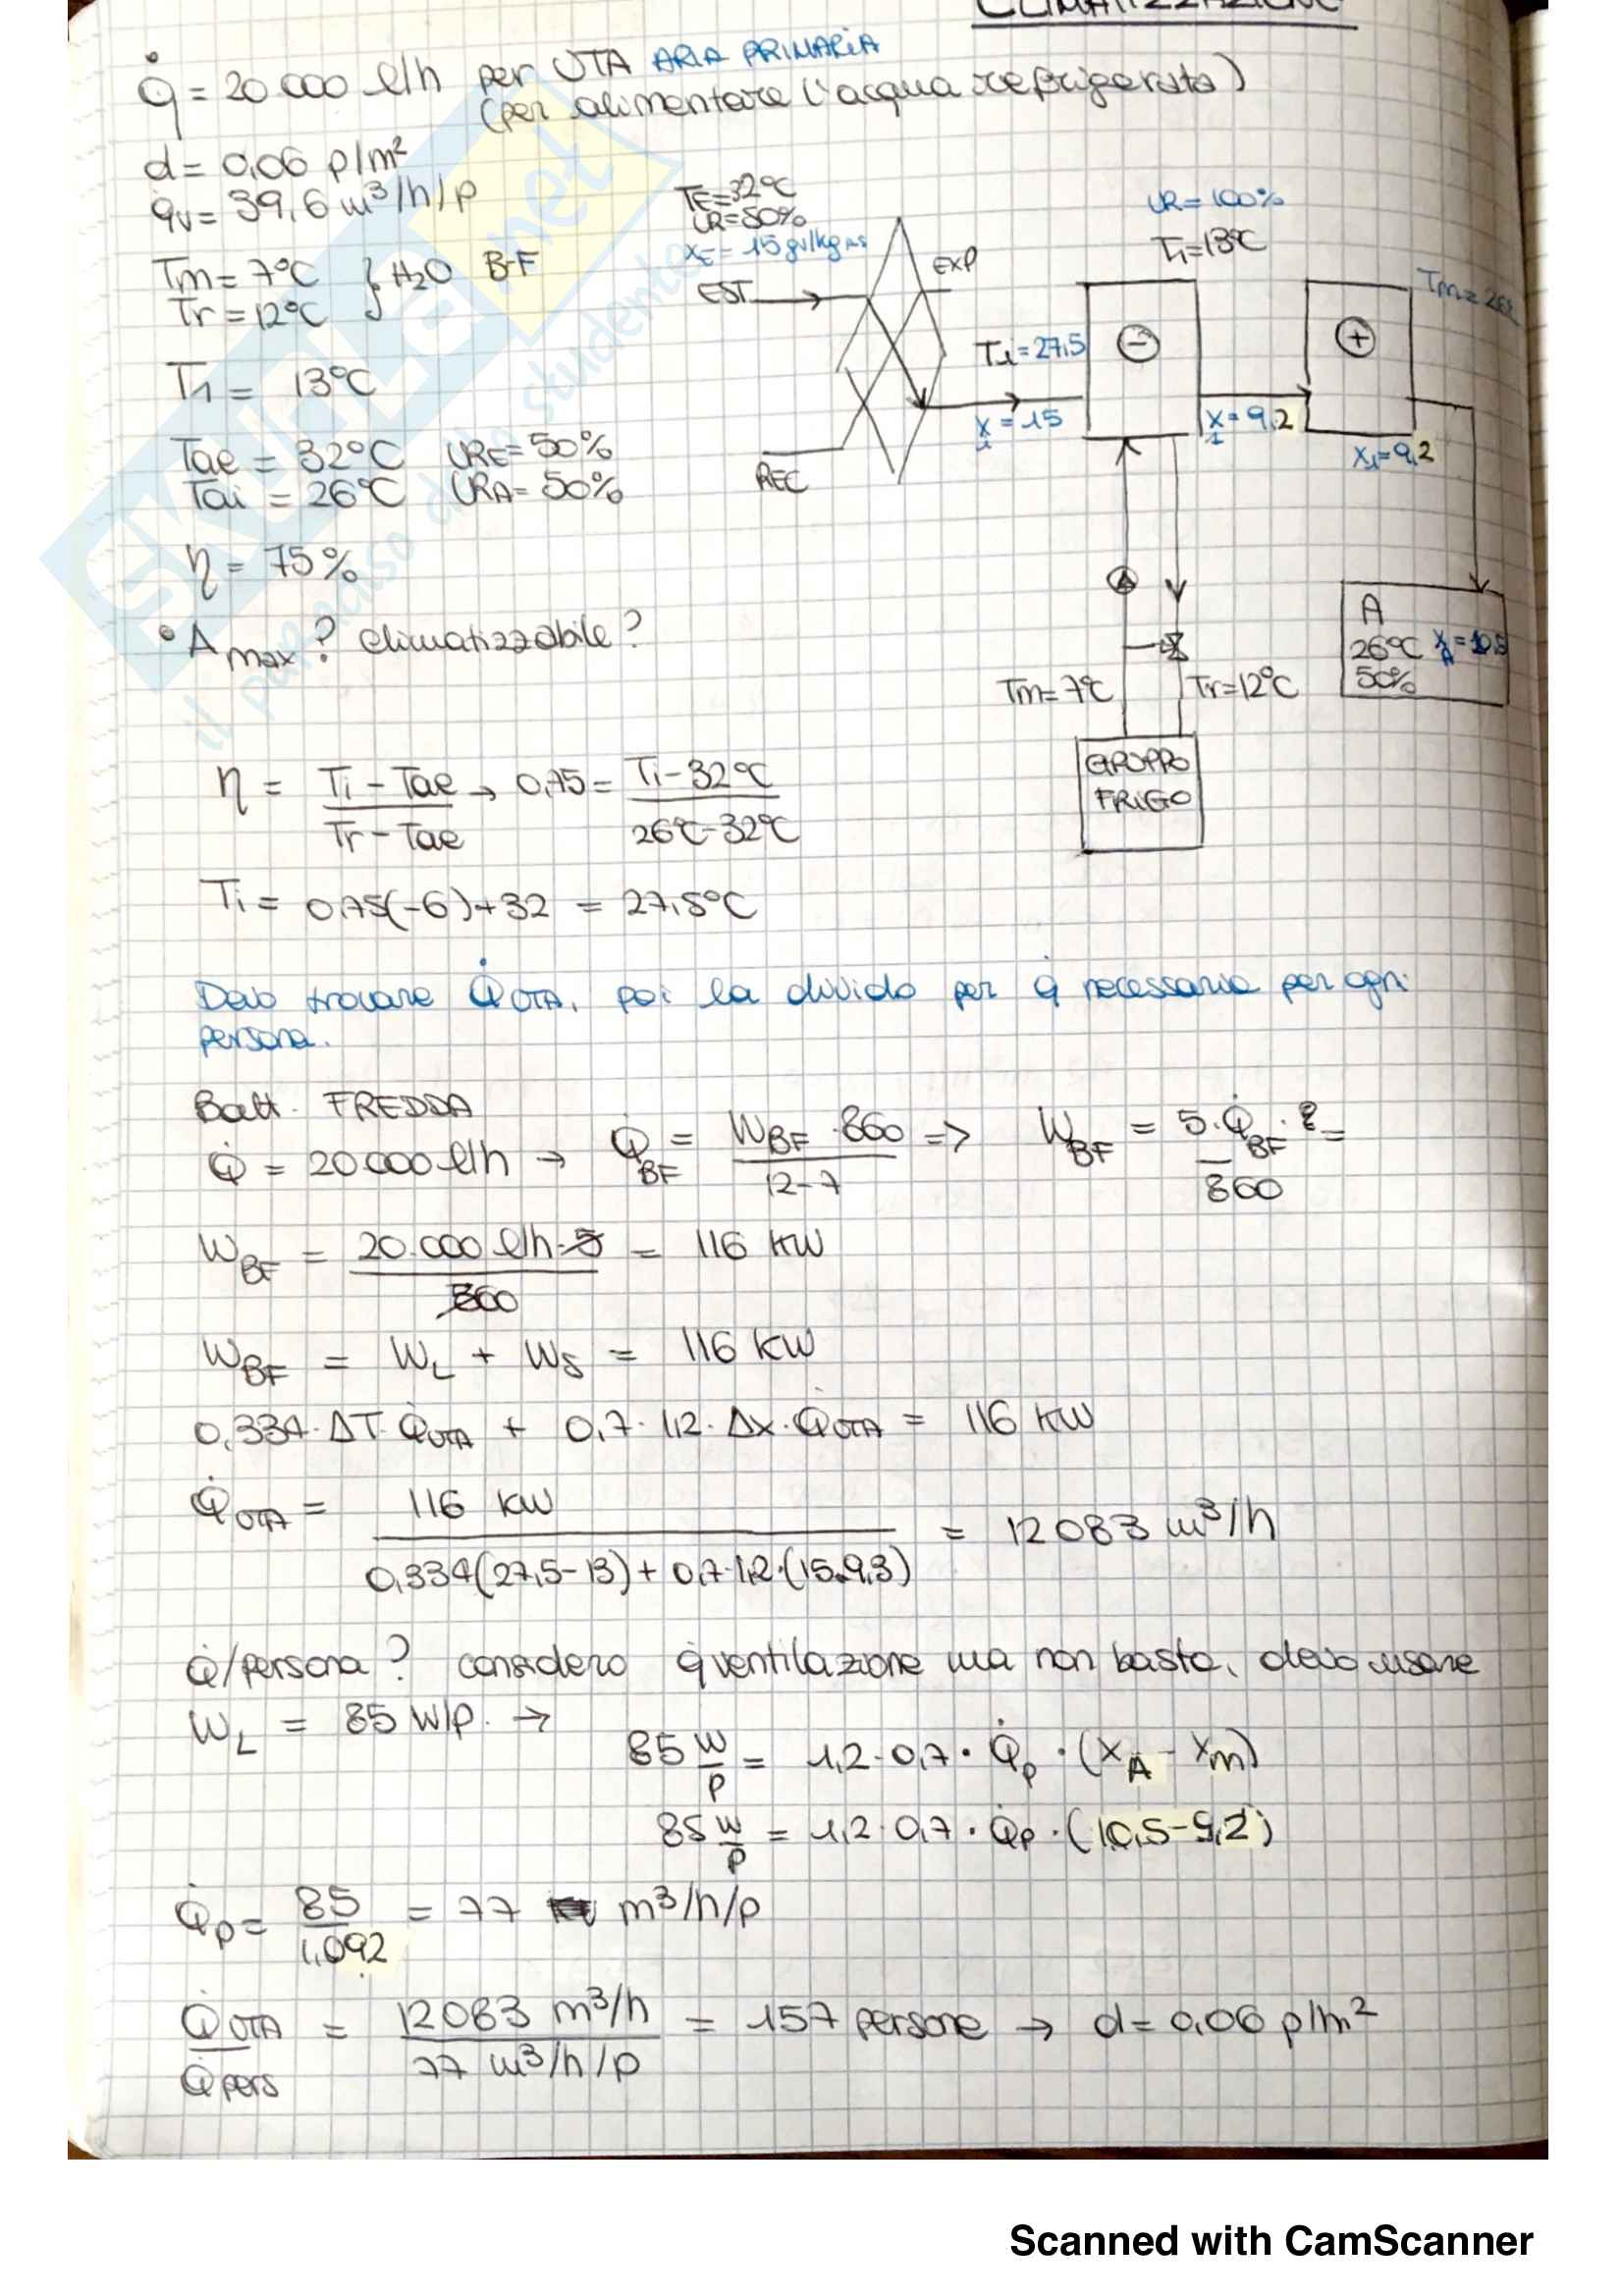 CLIMATIZZAZIONE
q̇ = 20 000 l/h per UTA ARIA PRIMARIA
(per alimentare l'acqua refrigerata)
d = 0,06 p/m²
qv = 39,6 m³/h/p
Tm = 7°C } H2O B-F
Tr = 12°C
T1 = 13°C
Tae = 32°C URE = 50%
Tai = 26°C URA = 50%
η = 75%
• Amax? climatizzabile?
TE = 32°C
UR = 50%
XE = 15 gv/kg as
EST
EXP
REC
T1 = 27,5
X1 = 15
UR = 100%
T1 = 13°C
−
X1 = 9,2
+
X1 = 9,2
A
26°C XA = 10,5
50%
Tm = 7°C Tr = 12°C
GRUPPO
FRIGO
η = Ti − Tae / Tr − Tae → 0,75 = Ti − 32°C / 26°C − 32°C
Ti = 0,75(−6)+32 = 27,5°C
Devo trovare Q̇UTA, poi la divido per q̇ necessaria per ogni
persona.
Batt. FREDDA
Q̇ = 20 000 l/h → Q̇BF = WBF · 860 / 12−7 => WBF = 5 · Q̇BF / 860 · ? =
WBF = 20.000 l/h · 5 / 860 = 116 KW
WBF = WL + WS = 116 KW
0,334 · ΔT · Q̇UTA + 0,7 · 1,2 · Δx · Q̇UTA = 116 KW
Q̇UTA = 116 KW / 0,334(27,5−13) + 0,7·1,2·(15−9,3) = 12 083 m³/h
Q̇/persona? considero q̇ ventilazione ma non basta, devo usare
WL = 85 W/p. →
85 W/p = 1,2 · 0,7 · Q̇p · (XA − Xm)
85 W/p = 1,2 · 0,7 · Q̇p · (10,5−9,2)
Q̇p = 85 / 1,092 = 77 m³/h/p
Q̇UTA / Q̇pers = 12 083 m³/h / 77 m³/h/p = 157 persone → d = 0,06 p/m²
SKUOLA.net
il paradiso dello studente
Scanned with CamScanner